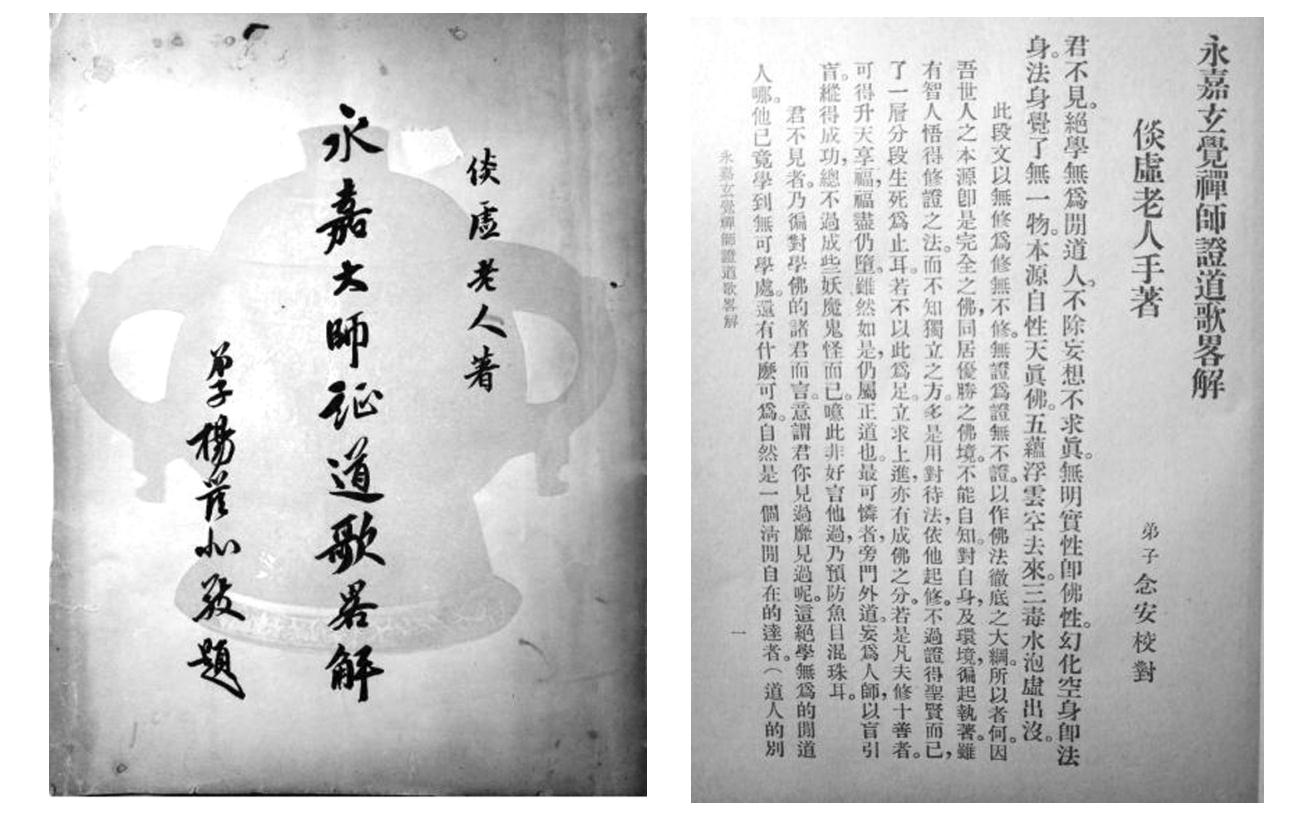 倓虛老人著
永嘉大師証道歌畧解
弟子楊
敬題
永嘉玄覺禪師證道歌畧解
倓虛老人手著
弟子念安校對
君不見。絕學無爲閒道人。不除妄想不求眞。無明實性卽佛性。幻化空身卽法
身。法身覺了無一物。本源自性天眞佛。五蘊浮雲空去來。三毒水泡虛出沒。
此段文以無修爲修無不修。無證爲證無不證。以作佛法徹底之大綱。所以者何。因
吾世人之本源卽是完全之佛，同居優勝之佛境。不能自知。對自身，及環境，徧起執著。雖
有智人悟得修證之法。而不知獨立之方。多是用對待法，依他起修。不過證得聖賢而已，
了一層分段生死爲止耳。若不以此爲足，立求上進，亦有成佛之分。若是凡夫修十善者。
可得升天享福，福盡仍墮。雖然如是，仍屬正道也。最可憐者，旁門外道。妄爲人師，以盲引
盲。縱得成功，總不過成些妖魔鬼怪而已。噫此非好言他過，乃預防魚目混珠耳。
君不見者。乃徧對學佛的諸君而言。意謂君你見過靡見過呢。這絕學無爲的閒道
人哪。他已竟學到無可學處。還有什麽可爲。自然是一個淸閒自在的達者。（道人的別
永嘉玄覺禪師證道歌畧解
一